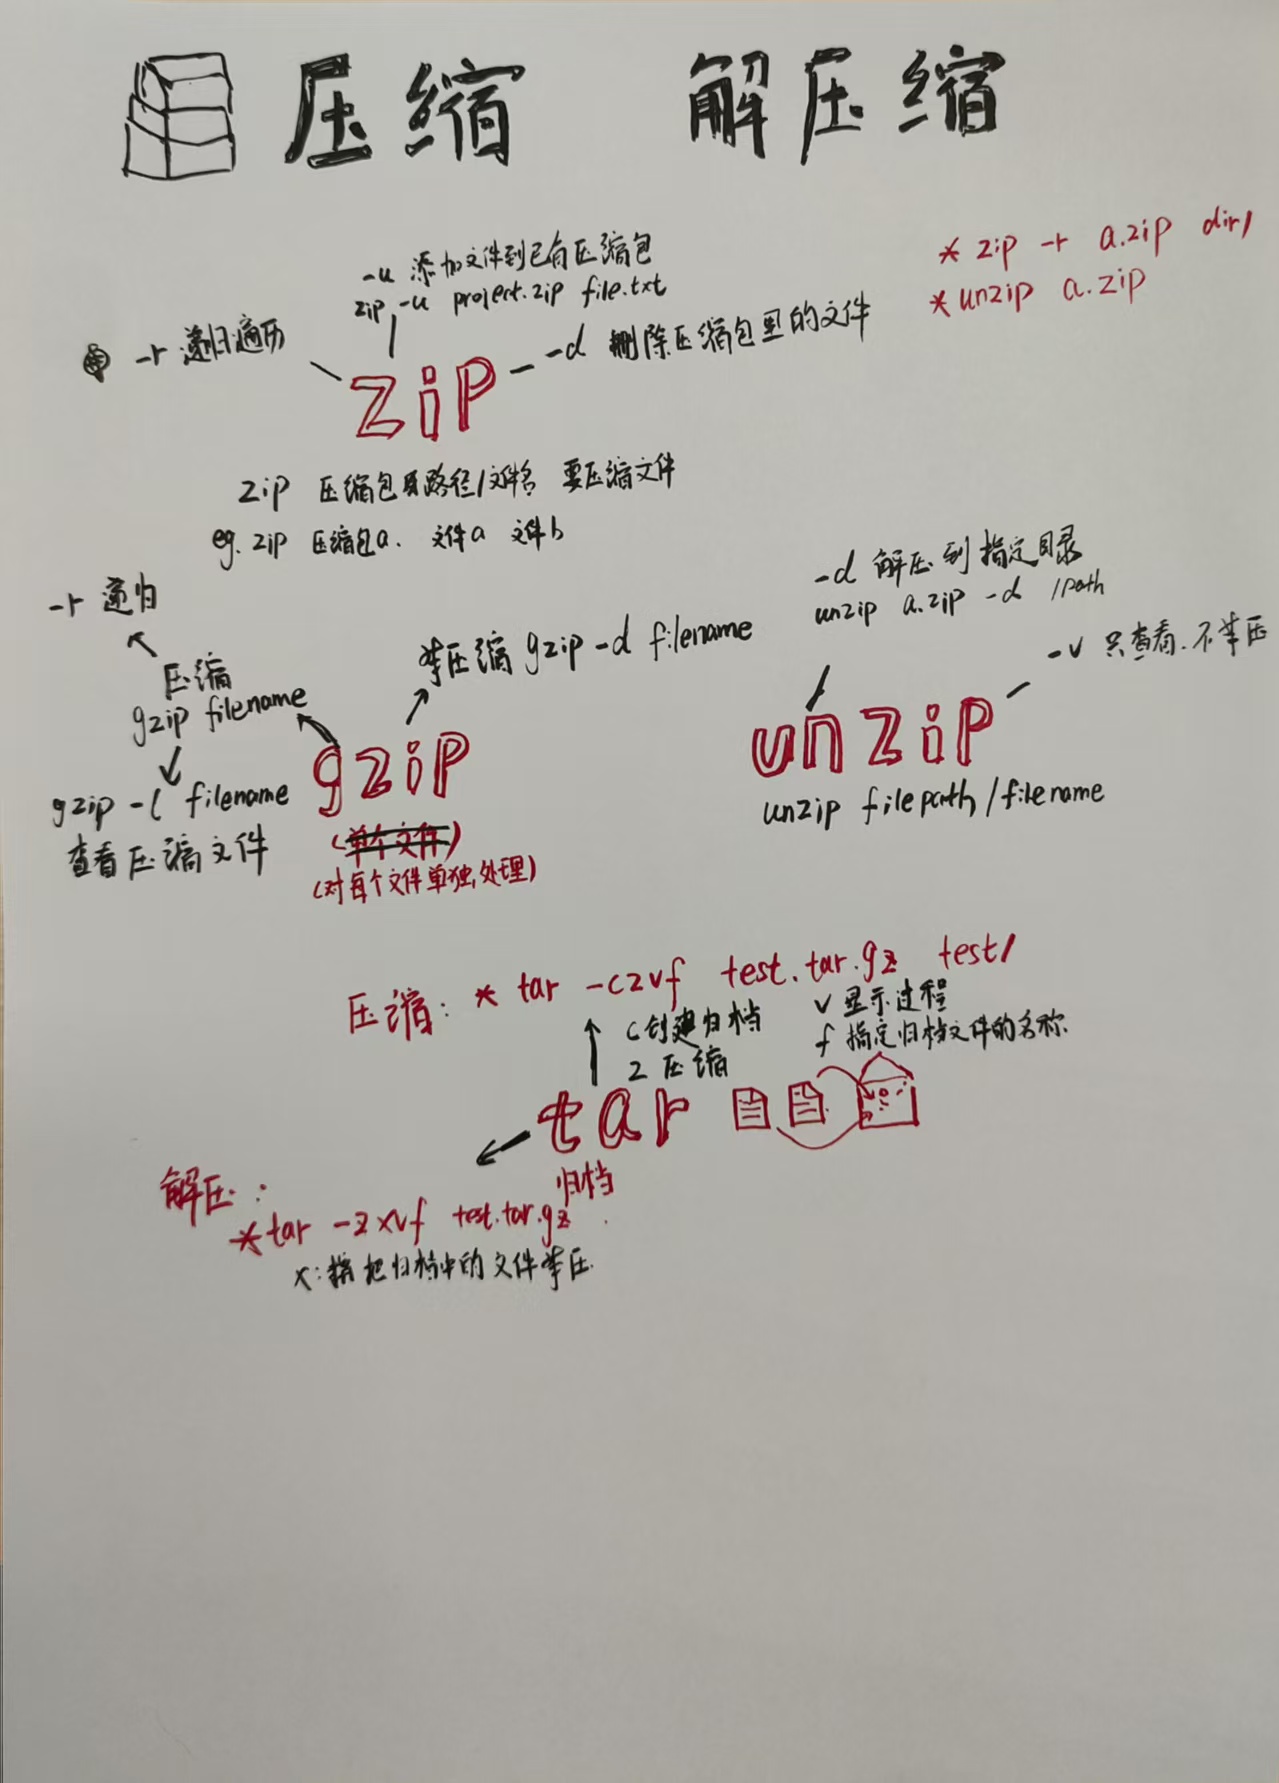 压缩 解压缩
* zip -r a.zip dir/
* unzip a.zip
-u 添加文件到已有压缩包
zip -u project.zip file.txt
-r 递归遍历
-d 删除压缩包里的文件
zip
zip 压缩包路径/文件名 要压缩文件
eg. zip 压缩包a. 文件a 文件b
-r 递归
压缩
gzip filename
gzip -l filename
查看压缩文件
解压缩 gzip -d filename
gzip
(单个文件)
(对每个文件单独处理)
-d 解压到指定目录
unzip a.zip -d /path
-v 只查看.不解压
unzip
unzip filepath/filename
压缩: * tar -czvf test.tar.gz test/
c 创建归档
z 压缩
v 显示过程
f 指定归档文件的名称
tar
归档
解压:
* tar -zxvf test.tar.gz
x:指把归档中的文件解压.